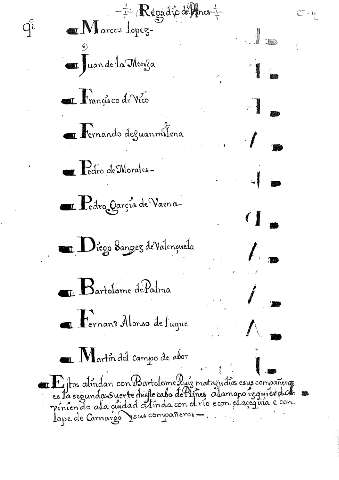 Regadio de Pines
Marcos Lopez
Juan de la Mesga
Françisco de Vico
Fernando de Juanmilena
Pedro de Morales
Pedro Garçia de Vaena
Diego Sangez de Valençuela
Bartolome de Palma
Fernan Alonso de Luque
Martin del Campo de
Estos alindan con Bartolome Ruiz e sus compañeros
es la segunda suerte deste cabo de Pines a la mano izquierda
viniendo a la ciudad alinda con el rio e con el açequia e con
Lope de Camargo y sus compañeros